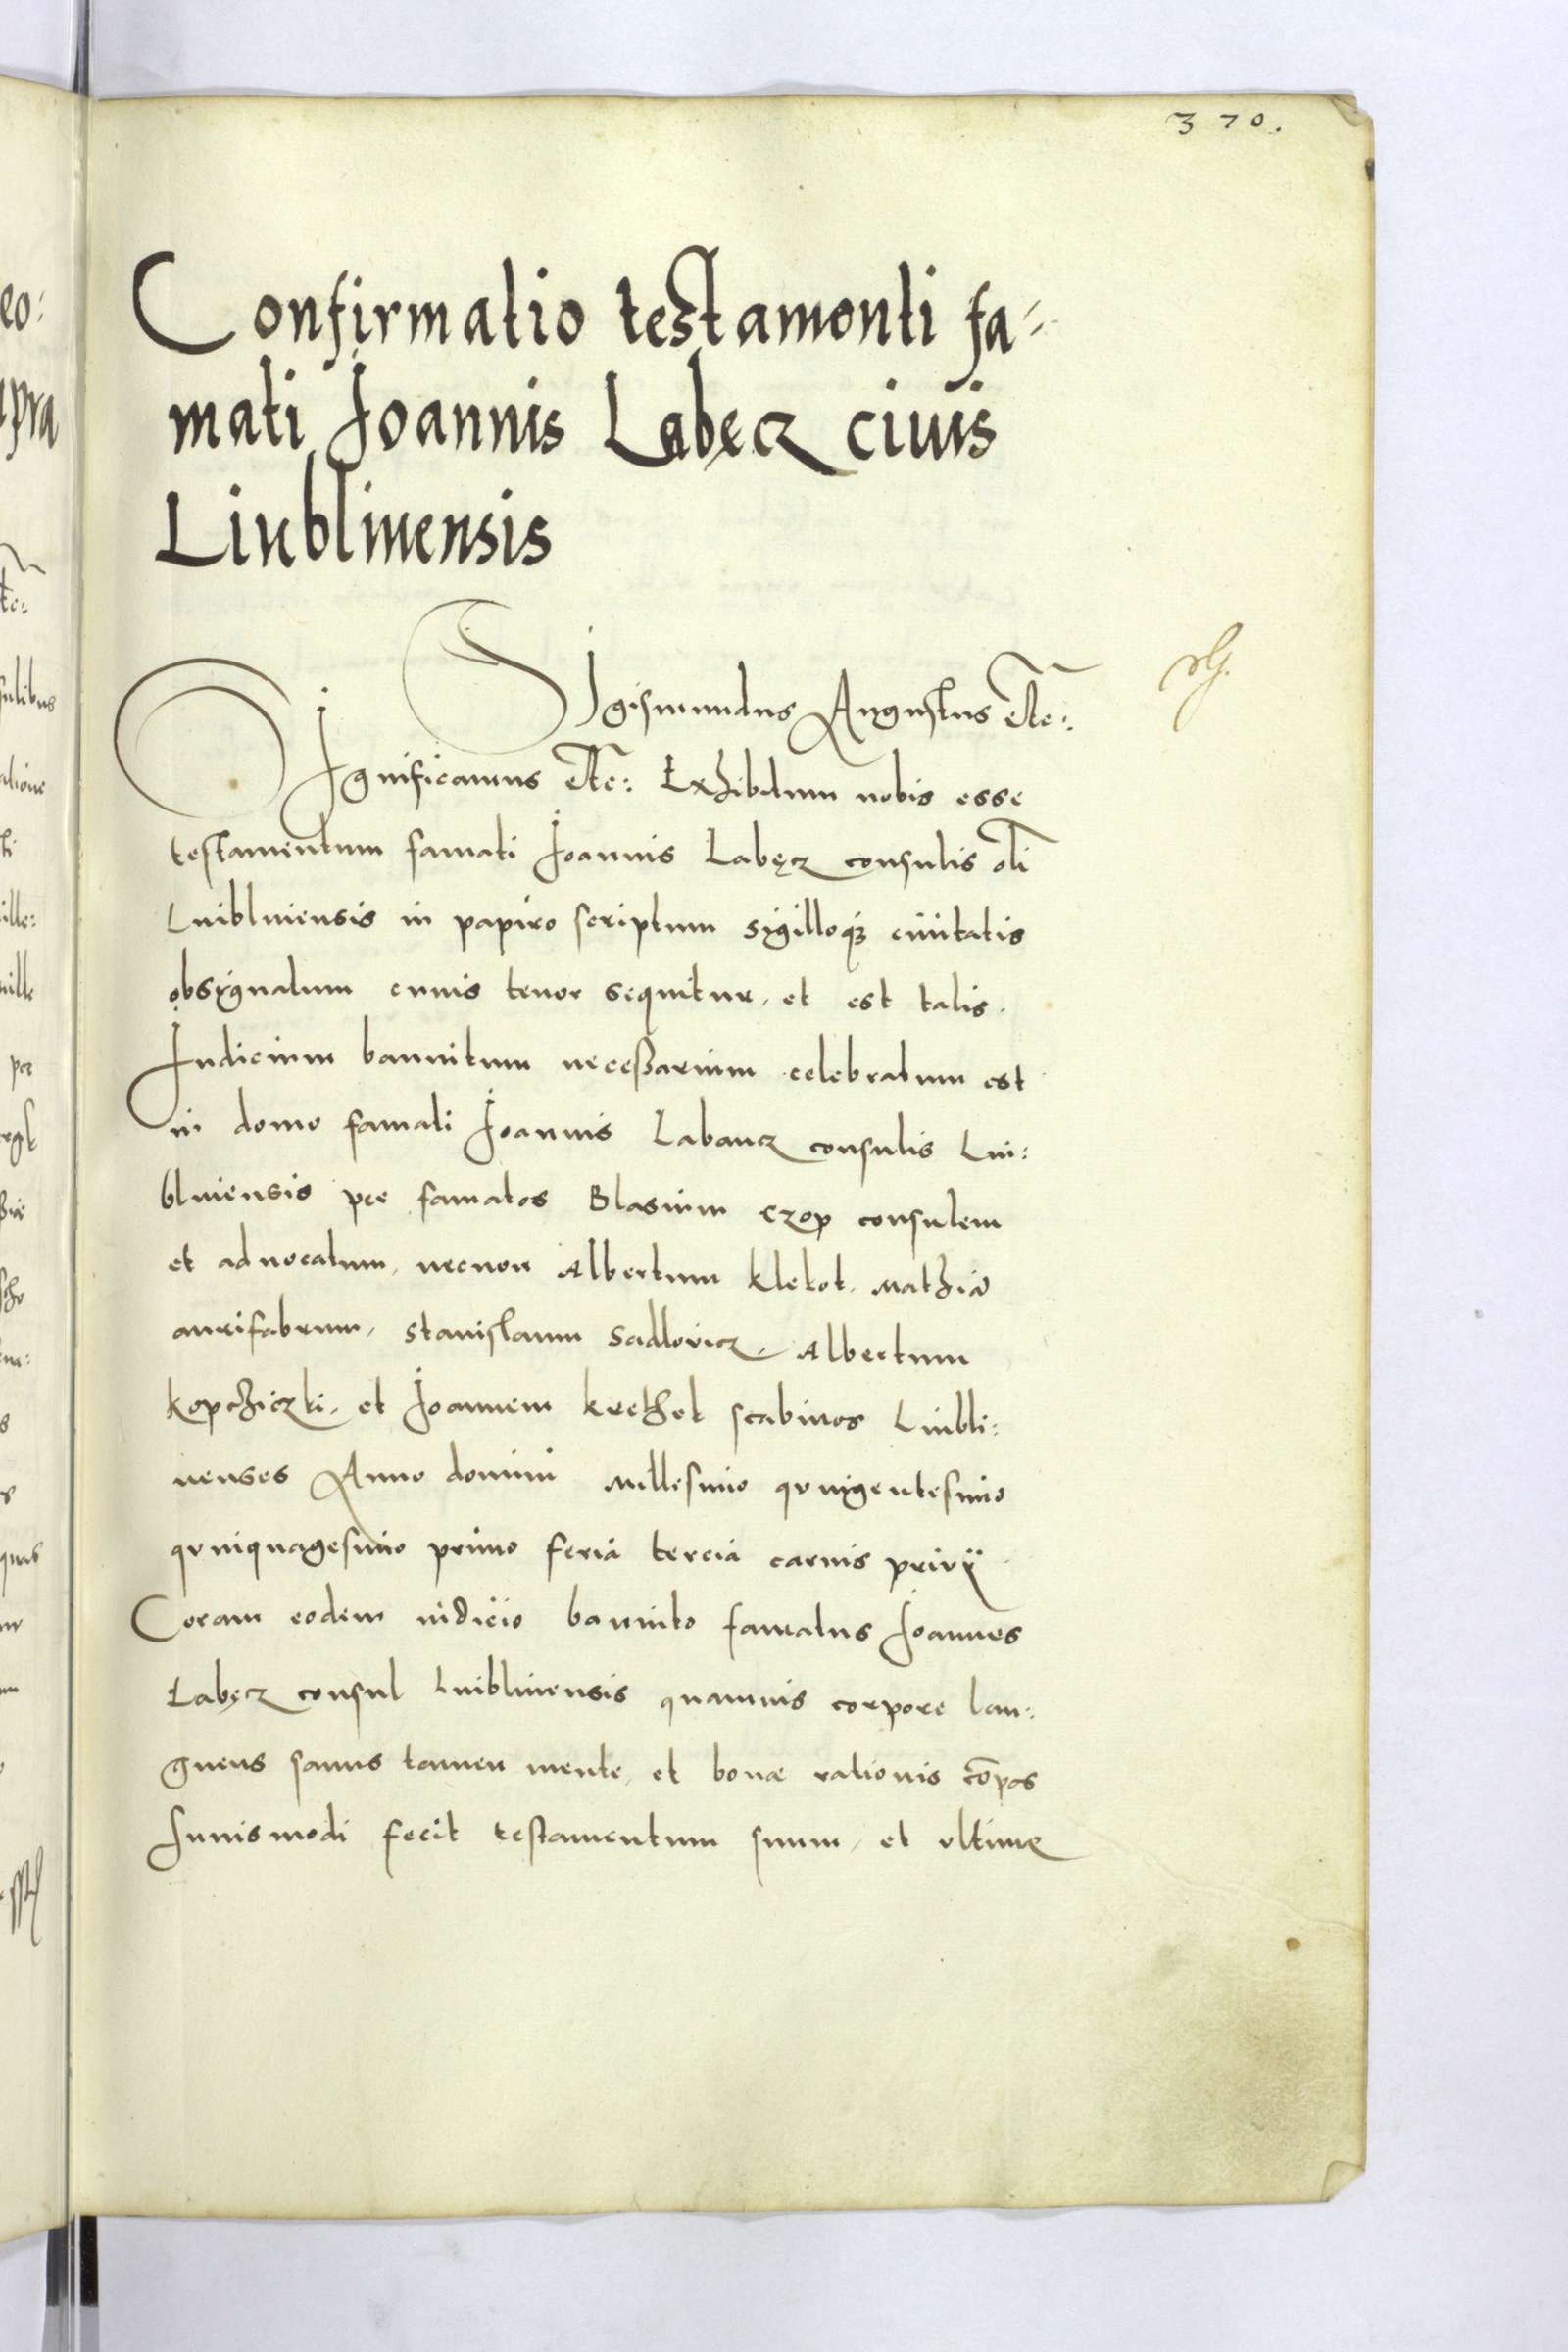 370.
Confirmatio testamenti fa-
mati Ioannis Labęcz ciuis
Liublinensis
Sigismundus Augustus etc:
Significamus etc: Exhibitum nobis esse
testamentum famati Ioannis Labęcz consulis oli
Luiblinensis in papiro scriptum sigilloqz ciuitatis
obsignatum cuius tenor sequitur, et est talis.
Iudicium bannitum necessarium celebratum est
in domo famati Ioannis Labancz consulis Lui:
blinensis per famatos Blasium Czop consulem
et aduocatum, necnon Albertum Klekot, Mathiā
aurifabrum, Stanislaum Sadlovicz, Albertum
Kopcziczki, et Ioannem Krethek scabinos Luibli:
nenses Anno domini Millesimo quingentesimo
quinquagesimo primo feria tercia carnis privÿ
Coram eodem iudicio bannito famatus Ioannes
Labęcz consul Luiblinensis quamuis corpore lan:
guens sanus tamen mente, et bonae rationis cōpos
huiusmodi fecit testamentum suum, et ultimae